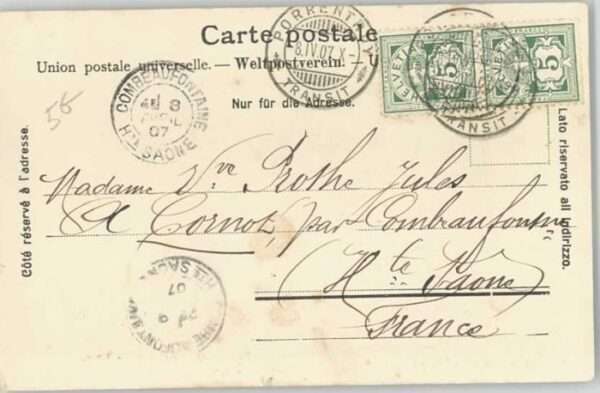 Carte postale
Union postale universelle. — Weltpostverein. — U
Nur für die Adresse.
Côté réservé à l'adresse.
Lato riservato all'indirizzo.
PORRENTRUY
8.IV.07.X-
TRANSIT
HELVETIA
5
5
TRANSIT
COMBEAUFONTAINE
8
AVRIL
07
HTE SAONE
56
Madame Vve Prothe Jules
A Cornot, par Combeaufontaine
Hte Saône
France
07
HTE SAONE